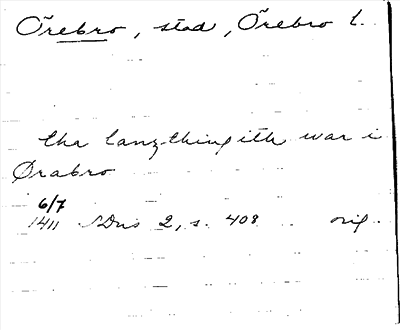 Örebro, stad, Örebro l.
tha lanzthingith war i
Ørabro
6/7
1411 SDns 2, s. 408 orig.